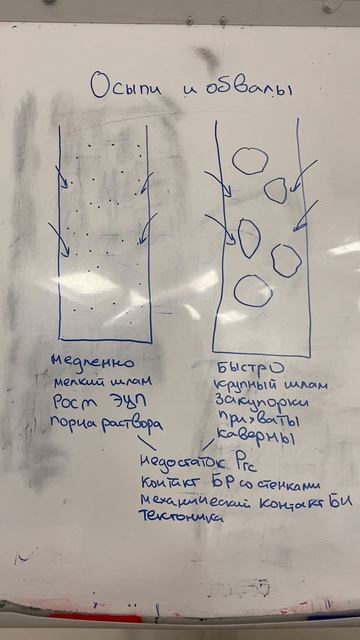 Осыпи и обвалы
медленно
мелкий шлам
рост ЭЦП
порча раствора
быстро
крупный шлам
закупорки
прихваты
каверны
недостаток Ргс
контакт БР со стенками
механический контакт БИ
тектоника